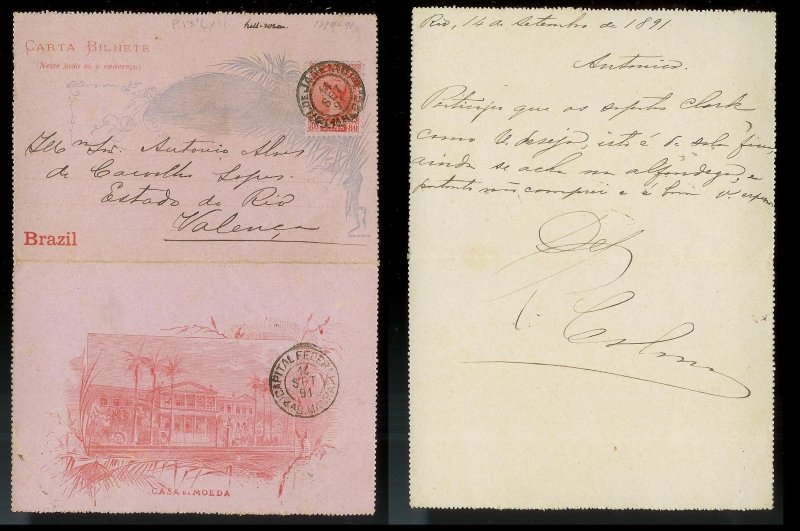 CARTA BILHETE
(Neste lado só o endereço)
80 80
Illmo Snr. Antonio Alves
de Carvalho Lopes.
Estado do Rio
Valença
Brazil
CAPITAL FEDERAL
14
SET
91
CASA DA MOEDA
Rio, 14 de Setembro de 1891
Antonico.
Participo que os sapatos Clark
como V. deseja, isto é de sola fina,
ainda se acha na alfandega, e
portanto não comprei e é bom V. esperar